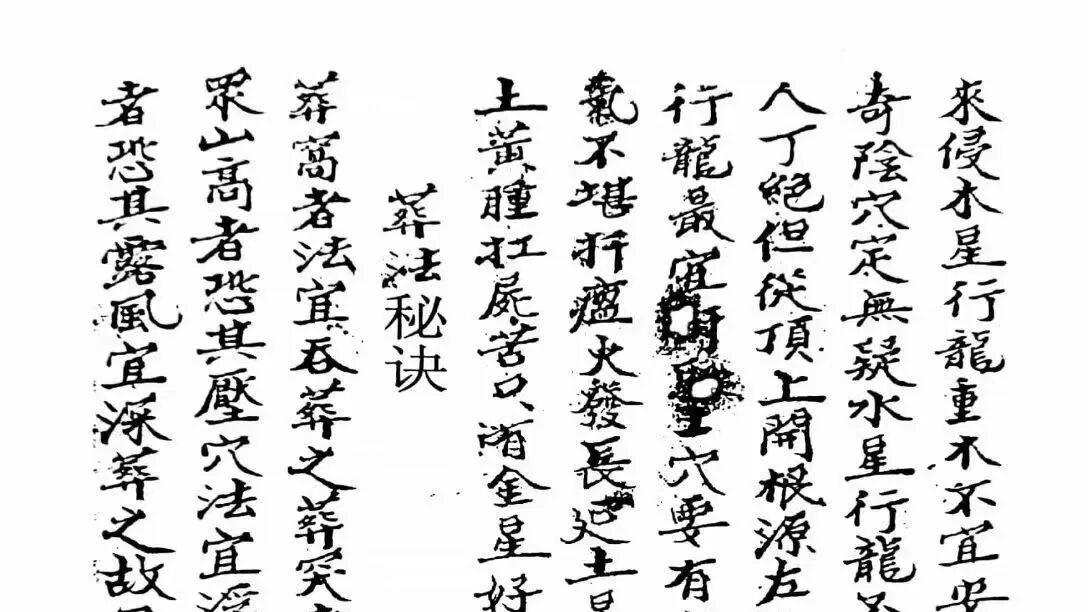 來侵木星行龍重木不宜安
奇陰穴定無疑水星行龍
人丁絕但從頂上開根源左
行龍最宜穴要有
氣不堪扦瘟火發長土星
土黃腫扛屍苦只有金星好
葬法秘诀
葬窩者法宜吞葬之葬突者
眾山高者恐其壓穴法宜浮
者恐其露風宜深葬之故